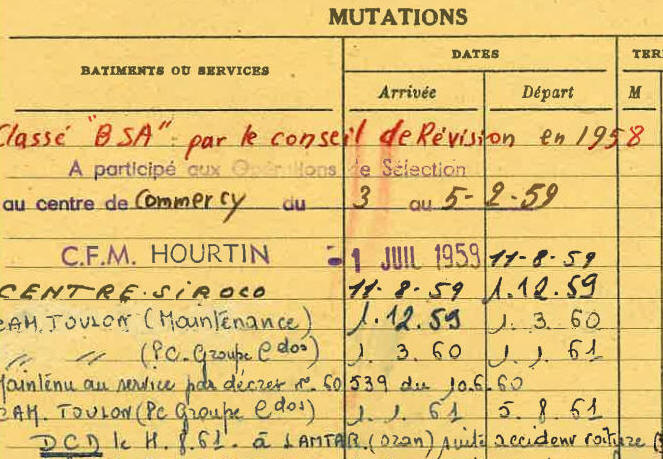 MUTATIONS
BATIMENTS OU SERVICES DATES TER
Arrivée Départ M
Classé "BSA" par le conseil de Révision en 1958
A participé aux Opérations de Sélection
au centre de Commercy du 3 au 5-2-59
C.F.M. HOURTIN - 1 JUIL 1959 11-8-59
CENTRE SIROCO 11-8-59 1.12.59
CAM. TOULON (Maintenance) 1.12.59 1. 3. 60
" " (PC. Groupe Cdos) 1. 3. 60 1. 1. 61
Maintenu au service par décret n°. 60 539 du 10.6.60
CAM. TOULON (PC Groupe Cdos) 1. 1. 61 5. 8. 61
DCD le 4.8.61. à LAMTAR. (Oran) suite accident voiture